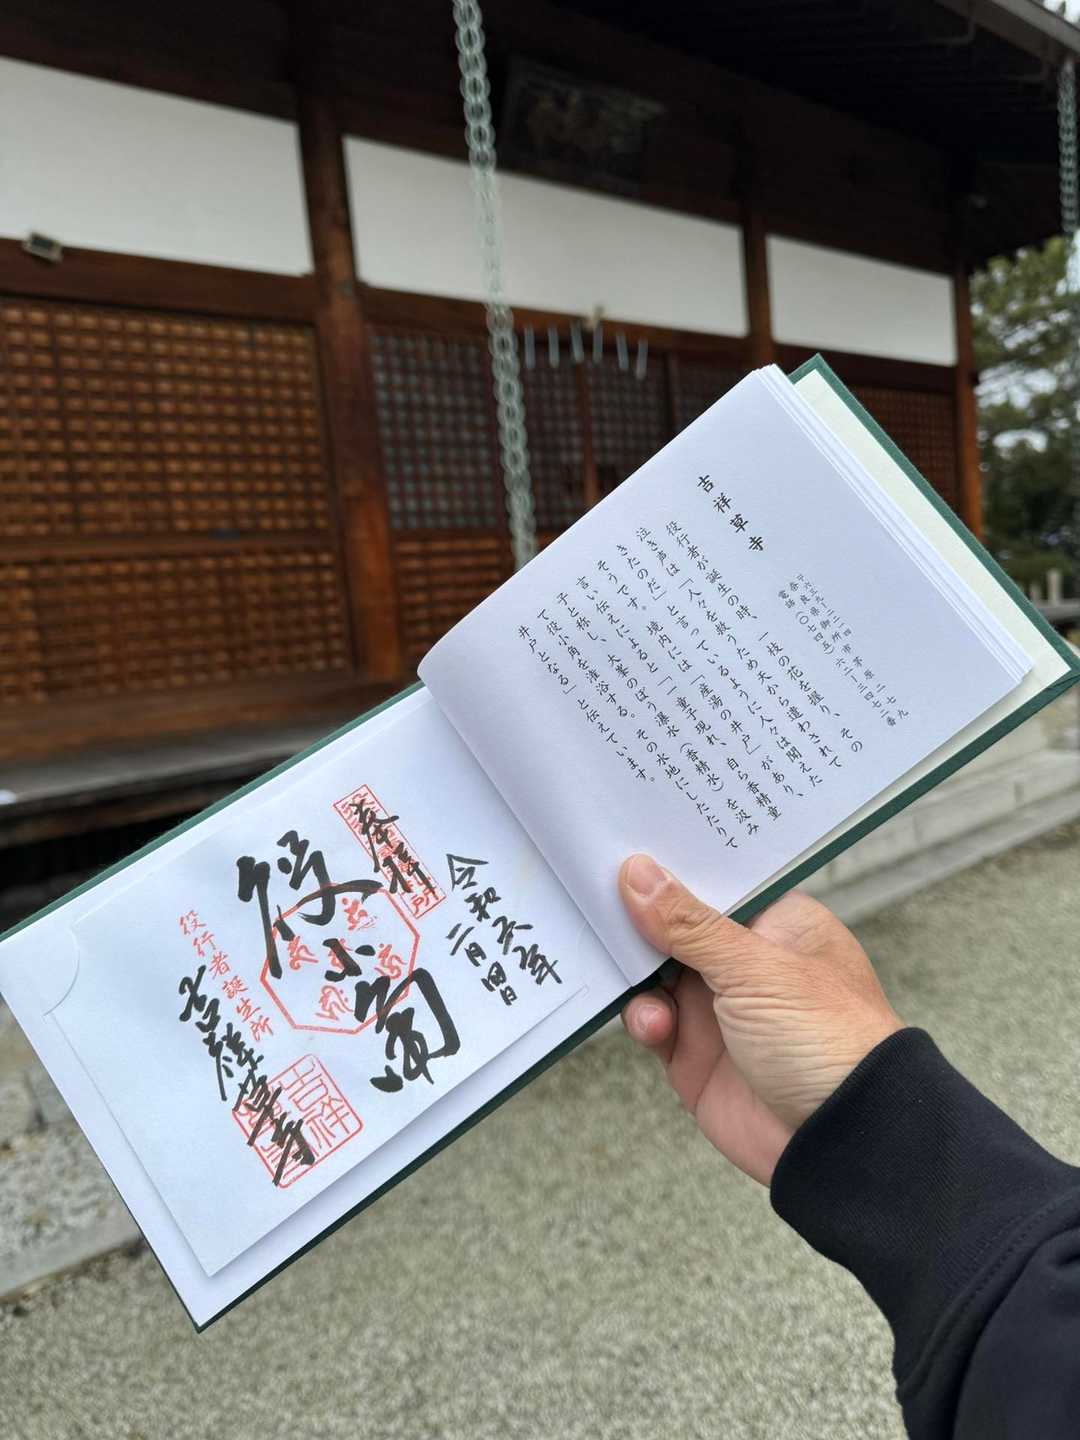 吉祥草寺
〒六三九ー二二一四
奈良県御所市茅原二七九
電話(〇七四五)六二ー三四七二番
役行者が誕生の時、一枝の花を握り、その
泣き声は「人々を救うため天から遣わされて
きたのだ」と言っているように人々は聞えた
そうです。境内には「産湯の井戸」があり、
言い伝えによると「一童子現れ、自ら香精童
子と称し、大峯のぼう瀑水(香精水)を汲み
て役小角を潅浴する。その水地にしたたりて
井戸となる」と伝えています。
奉拝
令和六年
二月四日
役小角
役行者誕生所
吉祥草寺